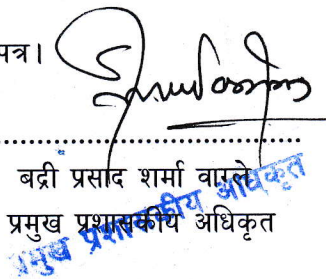 पत्र।
........................................
बद्री प्रसाद शर्मा वाग्ले
प्रमुख प्रशासकीय अधिकृत
प्रमुख प्रशासकीय अधिकृत